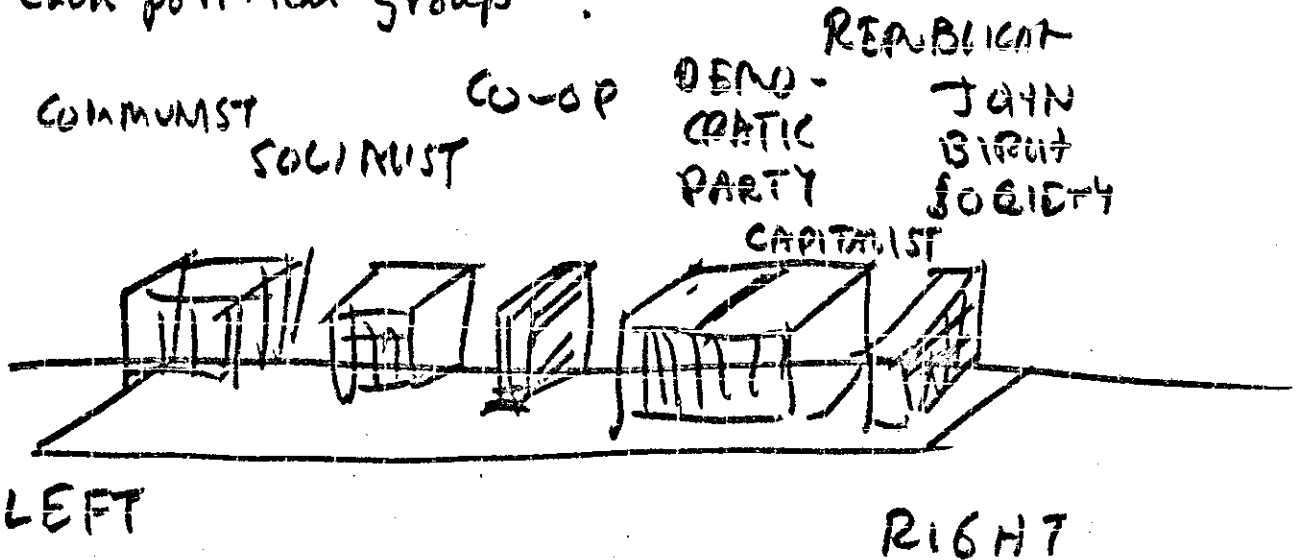 each political groups .
REPUBLICAN
COMMUNIST
SOCIALIST
CO-OP
DEMO-
CRATIC
PARTY
JOHN
BIRCH
SOCIETY
CAPITALIST
LEFT
RIGHT